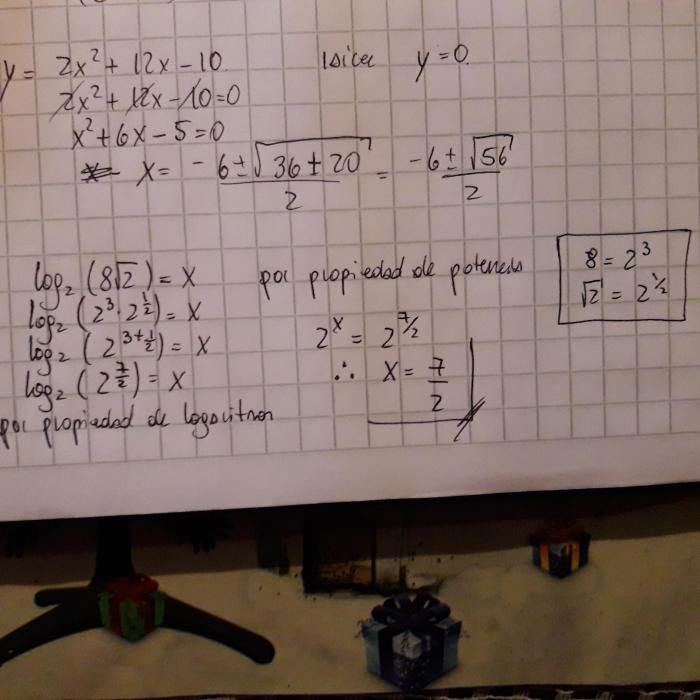 y = 2x² + 12x - 10 y = 0
2x² + 12x - 10 = 0
x² + 6x - 5 = 0
x = -6 ± √(36 ± 20) / 2 = -6 ± √56 / 2
log₂ (8√2) = x por propiedad de potencias
8 = 2³
√2 = 2^(1/2)
log₂ (2³ · 2^(1/2)) = x
log₂ (2^(3+1/2)) = x
2^x = 2^(7/2)
log₂ (2^(7/2)) = x
∴ x = 7/2
por propiedad de logaritmos